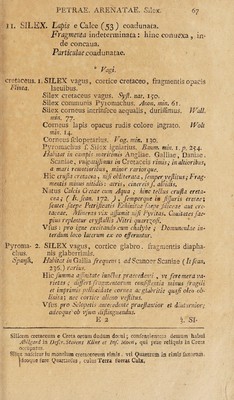 PETRAE. ARENATAE. Silex. 67
11. SILEX. Lapis e Calce (53) coadunata.
Fragmenta indeterminata: hinc convexa, in-
de concava.
Particulae coadunatae.
* Vagi.
cretaceus. 1. SILEX vagus, cortice cretaceo, fragmentis opacis
Flinta. laevibus.
Silex cretaceus vagus. Syst. nat. 150.
Silex communis Pyromachus. Amm. min. 61.
Silex corneus intrinsece aequalis, durissimus. Wall.
min. 77.
Corneus lapis opacus rudis colore ingrato. Wolt
min. 14.
Corneus sclopetarius. Vog. min. 130.
Pyromachus f. Silex igniarius. Boum. min. 1. p. 244.
Habitat in campis maritimis Angliae, Galliae, Daniae,
Scaniae, vagus; saepissime in Cretaceis rimis; in altioribus,
a mari remotioribus, minor rariorque.
Hic crusta cretacea, nisi obliterata, semper vestitus; Frag-
mentis minus nitidis: atris, cinereis f. albidis.
Natus Calcis Cretae cum Aqua; hinc tectus crusta creta-
cea; (It. scan. 172.) semperque in fissuris cretae;
Involvit saepe Petrificata Echinitae saepe faecae aut cre-
taceae. Minoris vix assumit visi Pyritas. Cavitates sae-
pius replentur crystallis Nitri quarzosis.
Vsus: pro igne excitando cum chalybe; Domunculae in-
terdum loco laterum ex eo efferuntur.
Pyroma- 2. SILEX vagus, cortice glabro, fragmentis diapha-
chus. nis glaberrimis.
Spansk. Habitat in Gallia frequens; ad Scanorr Scaniae (It scan.
236.) rarius.
Hic summa affinitate junctus praecedenti, ut fere mera va-
rietas; differt fragmentorum consistentia minus fragili
et imprimis pelluciditate cornea ac glabritie quasi oleo ob-
linita; nec cortice albido vestitus.
Vsus pro Sclopetis antecedente praestantior et diuturnior;
adeoque ob usum distinguendus.
E 2 3. SI-
Silicem corneorum e Creta ortum dudum docui; consentientem demum habui
Abilgard in Descr. Stevens Klint et Ins. Moen, qui prae reliquis in Creta
occupatus.
Silex nascitur in montium cretaceorum rimis, vel Quartzum in rimis saxorum
ideoque sunt Quartzatus, cuius Terra fuerat Calx.